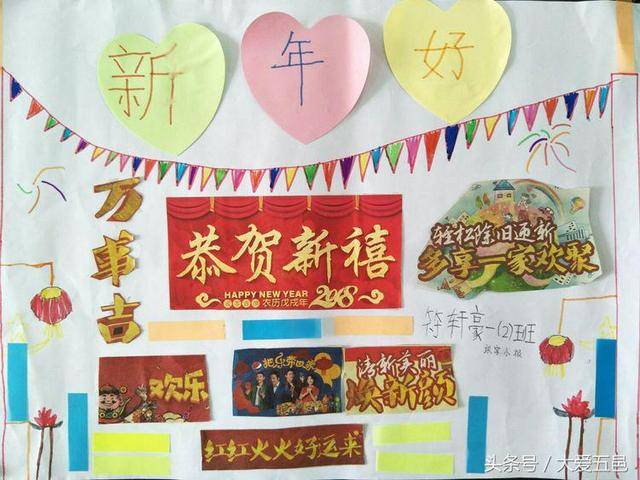 新年好
万事吉
恭贺新禧
HAPPY NEW YEAR
农历戊戌年
2018
轻松除旧迎新
多享一家欢聚
符轩豪一(2)班
欢乐
把乐带回家
清新美丽
焕新颜
红红火火好运来
头条号/大爱五邑